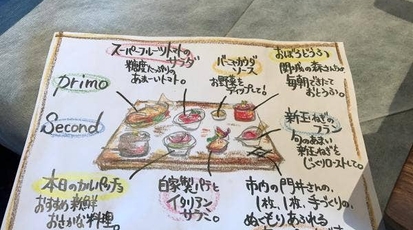 スーパーフルーツトマトの
サラダ
糖度たっぷりの
あまーいトマト。
バーニャカウダ
ソース
お野菜を
ディップして!
おぼろどうふ
関城の森さんちの
毎朝できたて
おとうふ。
primo
Second
新玉ねぎの
フラン
旬のあまい
新玉ねぎを
じっくりローストして。
本日のカルパッチョ
おすすめ新鮮
おさかな料理。
自家製パテと
イタリアン
サラミ。
市内の門井さんの、
1枚、1枚、手づくりの、
ぬくもりあふれる